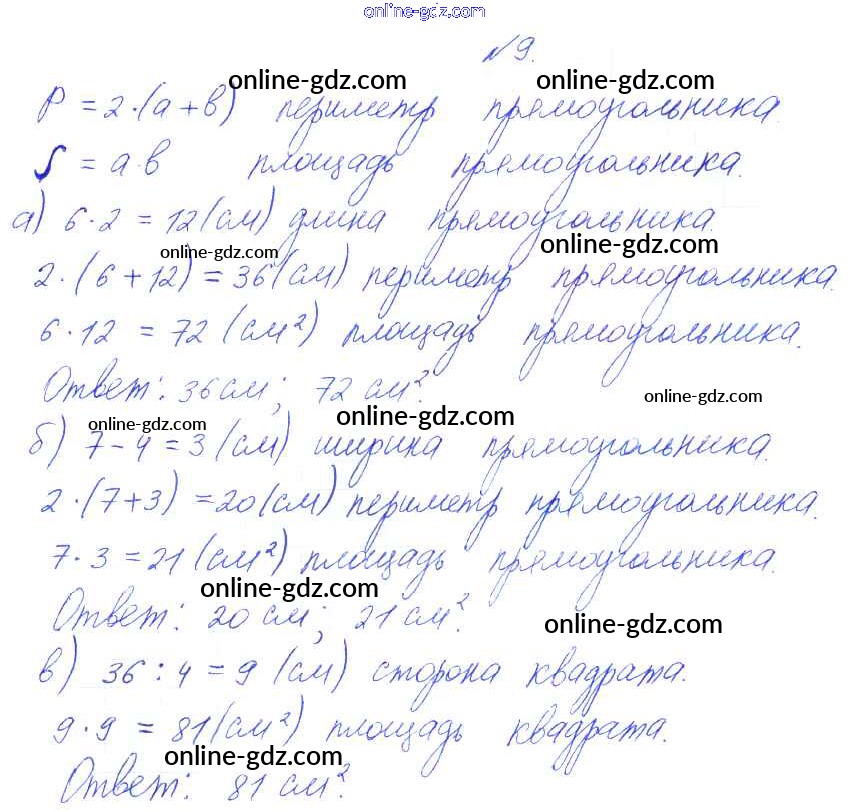 online-gdz.com
№9.
online-gdz.com online-gdz.com
P = 2·(a+b) периметр прямоугольника.
S = a·b площадь прямоугольника.
а) 6·2 = 12(см) длина прямоугольника.
online-gdz.com online-gdz.com
2·(6+12) = 36(см) периметр прямоугольника.
6·12 = 72 (см²) площадь прямоугольника.
Ответ: 36 см; 72 см².
online-gdz.com online-gdz.com online-gdz.com
б) 7-4=3 (см) ширина прямоугольника.
2·(7+3) =20(см) периметр прямоугольника.
7·3=21 (см²) площадь прямоугольника.
online-gdz.com
Ответ: 20 см; 21 см².
online-gdz.com
в) 36:4=9 (см) сторона квадрата.
9·9 = 81(см²) площадь квадрата.
online-gdz.com
Ответ: 81 см².